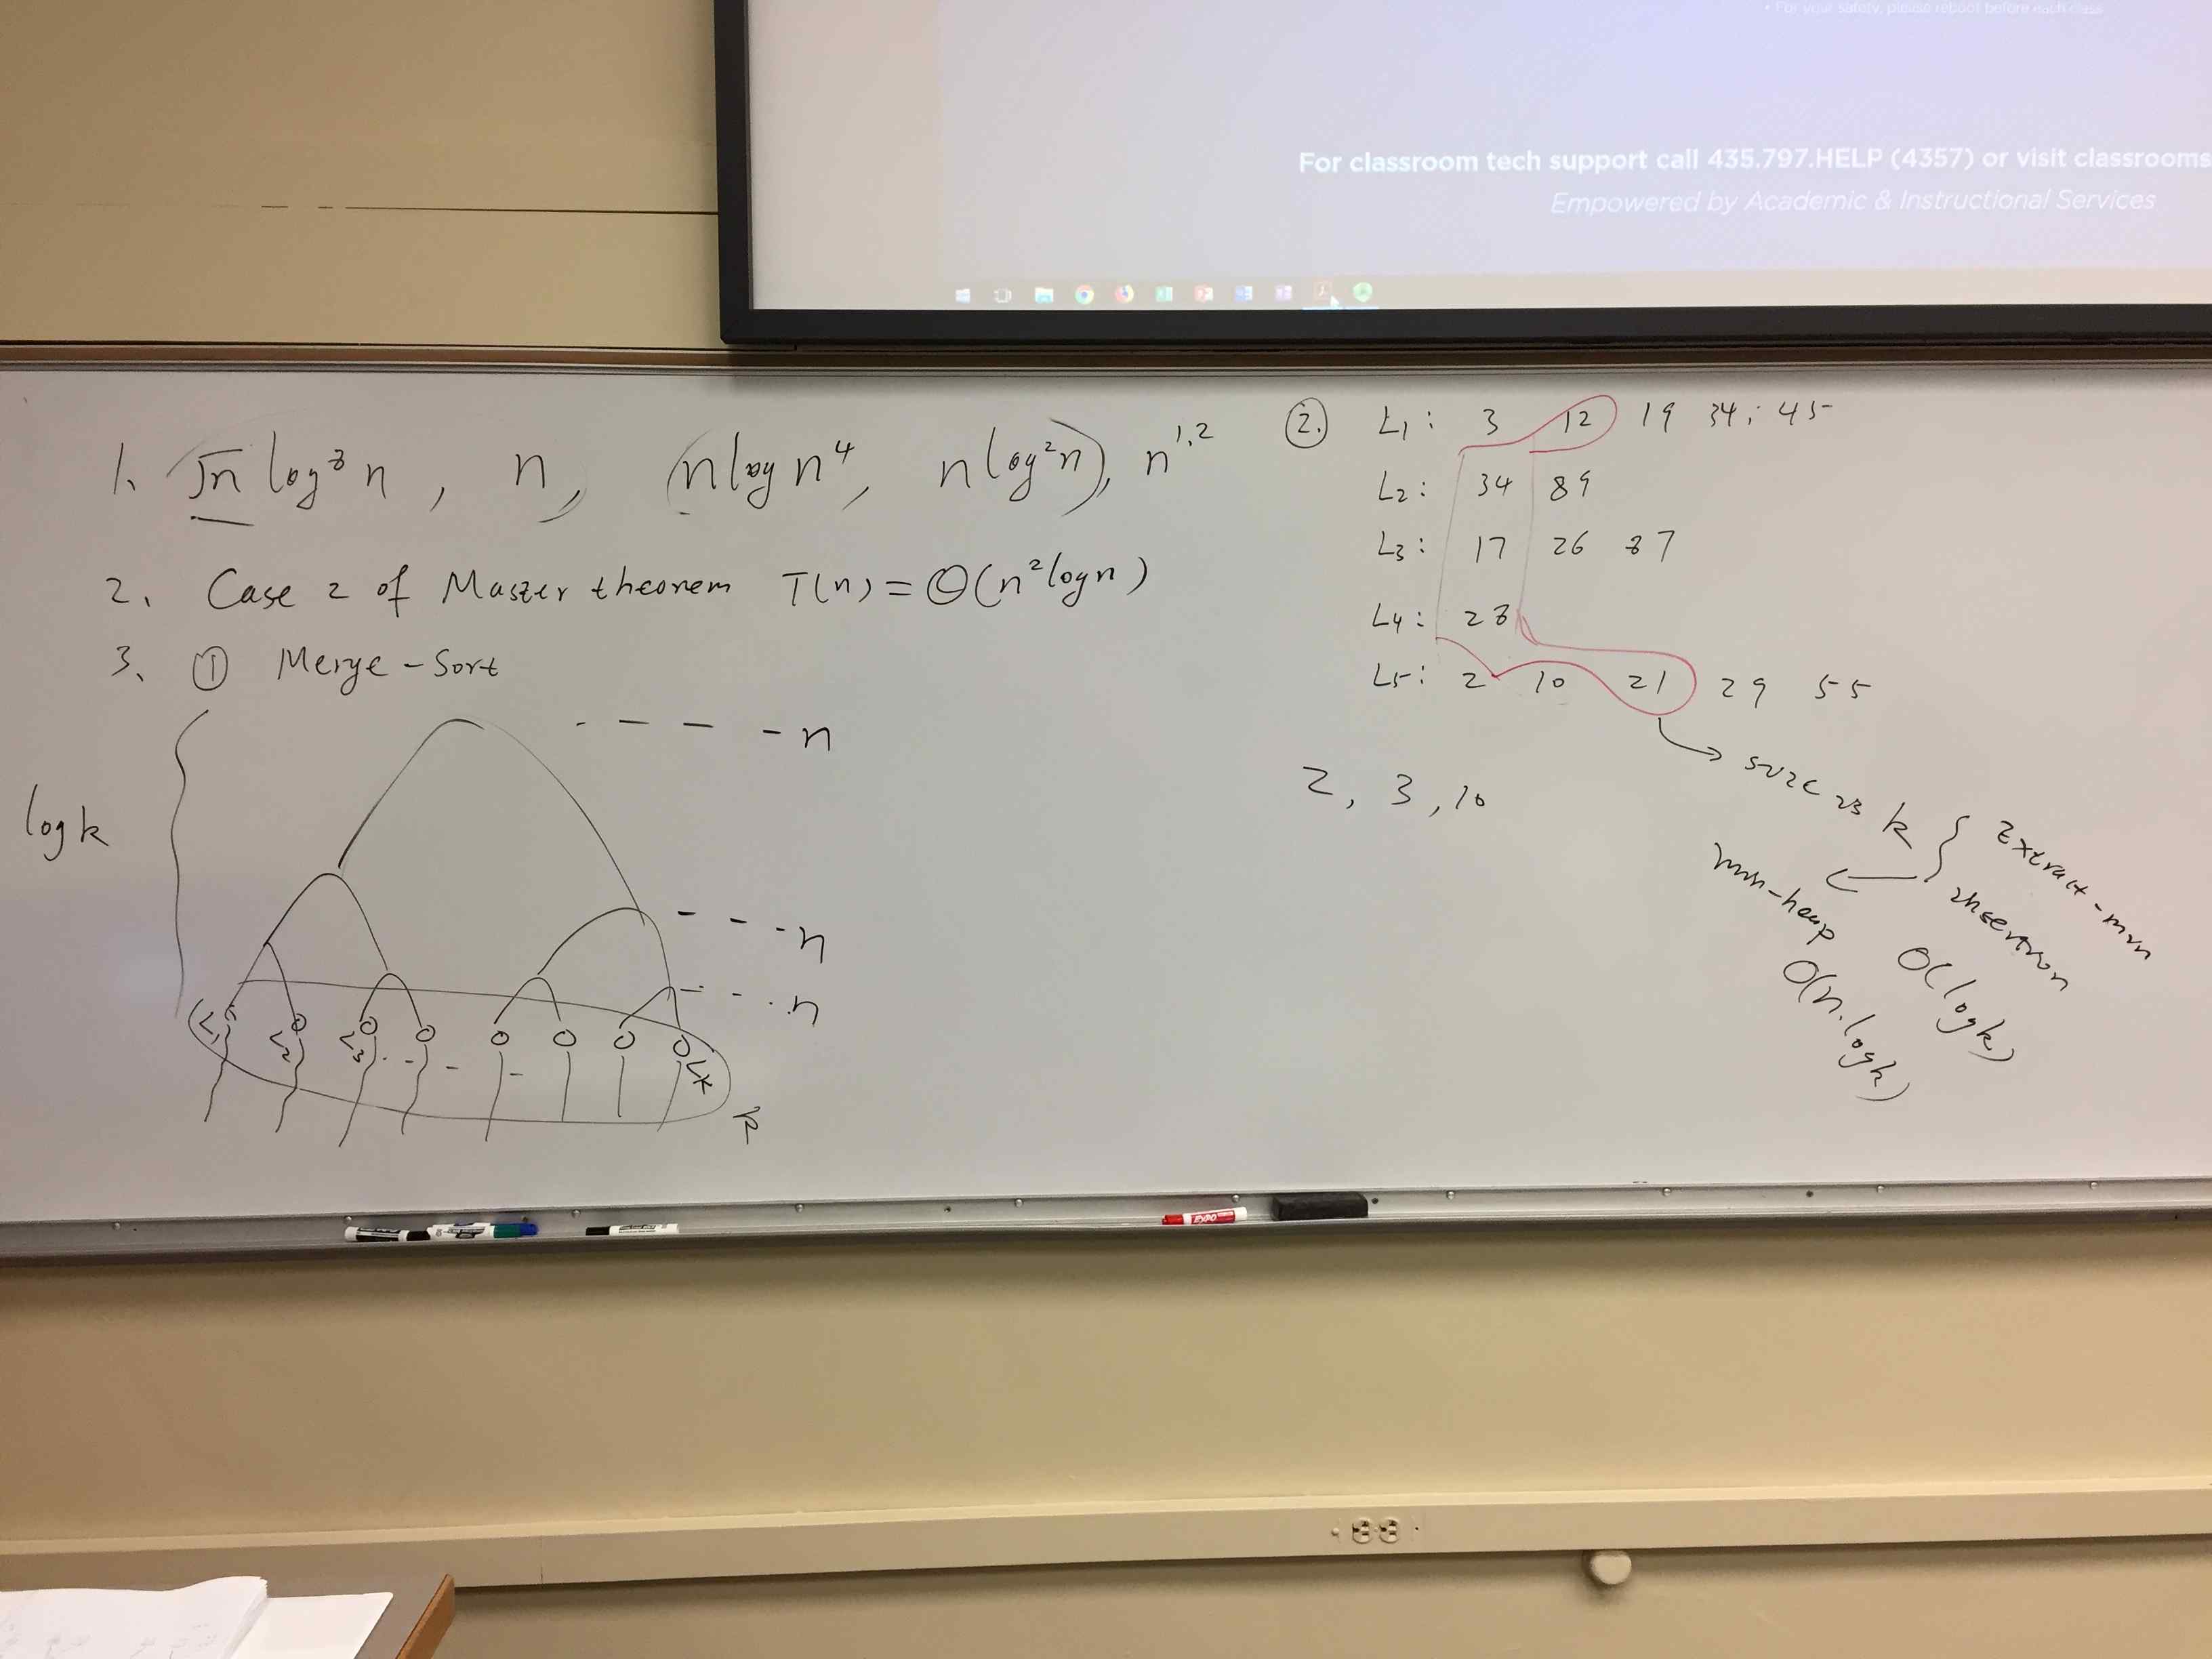 • For your safety, please reboot before each class
For classroom tech support call 435.797.HELP (4357) or visit classrooms
Empowered by Academic & Instructional Services
1. √n log³ n, n, (n log n⁴, n log² n), n^1.2
2. Case 2 of Master theorem T(n) = Θ(n² log n)
3. ① Merge-Sort
n
log k
n
n
L1 L2 L3 . - - - Lk
k
②. L1: 3 12 19 34 45
L2: 34 89
L3: 17 26 87
L4: 28
L5: 2 10 21 29 55
2, 3, 10
size is k
extract-min
insertion
O(log k)
min-heap
O(n·log k)
EXPO